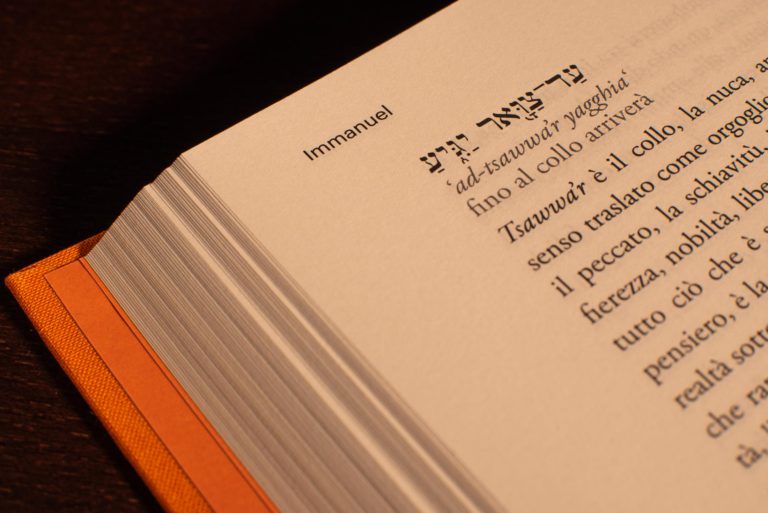 Immanuel
עַד־צַוָּאר יַגִּיעַ
‘ad-tsawwa’r yagghia‘
fino al collo arriverà
Tsawwa’r è il collo, la nuca,
senso traslato come
il peccato, la schiavitù,
fierezza, nobiltà,
tutto ciò che è
pensiero, è la
realtà
che